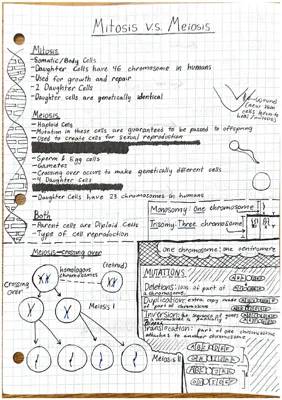 Mitosis v.s. Meiosis
Mitosis
-Somatic/Body Cells
-Daughter Cells have 46 chromosome in humans
-Used for growth and repair
-2 Daughter Cells
-Daughter cells are genetically identical
Meiosis
-Haploid Cells
-Mutation in these cells are guaranteed to be passed to offspring
-Used to create cells for sexual reproduction
-Sperm & Egg cells
-Gametes
-Crossing over occurs to make genetically different cells
-4 Daughter Cells
-Daughter Cells have 23 chromosomes in humans
Both
-Parent cells are Diploid Cells
-Type of cell reproduction
wound
(new skin
cells have to
Monosomy: One chromosome
Trisomy: Three chromosome
one chromosome: one centromere
Meiosis-crossing over
homologous
chromosomes
Crossing
over
Meiosis I
Meiosis II
MUTATIONS
Deletions: loss of part of
a chromosome
Duplication: extra copy made
of part of chromosome
Inversion: the sequence of genes
Translocation: part of one chromosome
attaches to another chromosome